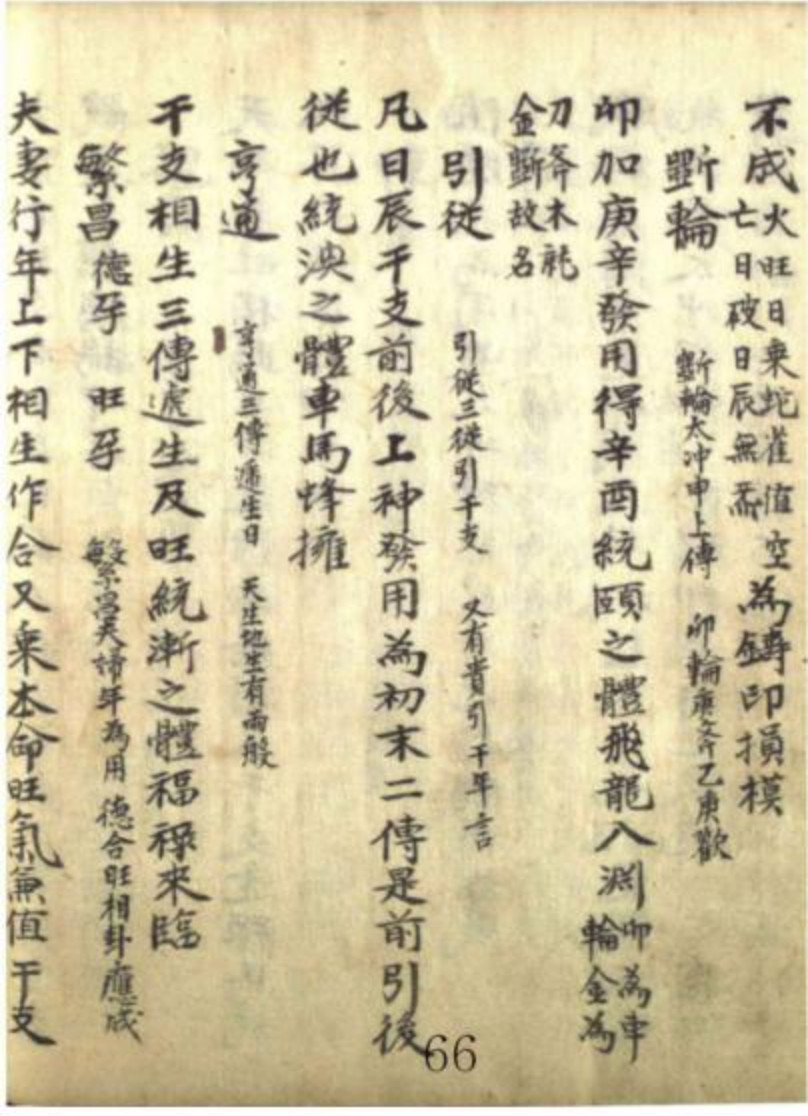 不成火旺日乘蛇雀值空亡日破日辰無氣為鑄印損模
斲輪 斲輪太冲申上傳 卯輪庚斧乙庚歡
卯加庚辛發用得辛酉統頤之體飛龍入淵卯為車輪金為
刀斧木就金斲故名
引從 引從三從引干支 又有貴引干年言
凡日辰干支前後上神發用為初末二傳是前引後
從也統渙之體車馬蜂擁
亨通 亨通三傳遞生日 天生地生有兩般
干支相生三傳遞生及旺統漸之體福祿來臨
繁昌 德孕 旺孕 繁昌夫婦年為用 德合旺相卦應成
夫妻行年上下相生作合又乘本命旺氣兼值干支
66